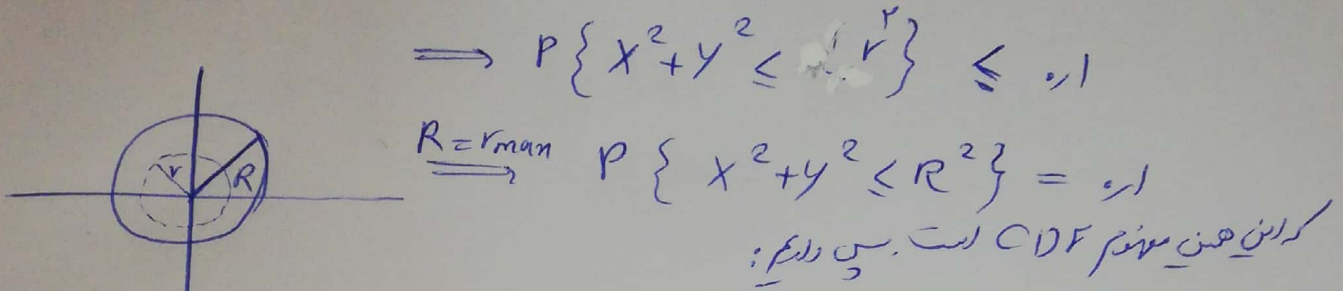 ⟹ P{X²+Y² ≤ r²} ≤ ۰٫۱
R = rmax ⟹ P{X²+Y² ≤ R²} = ۰٫۱
r R
که این همین مفهوم CDF است. پس داریم: